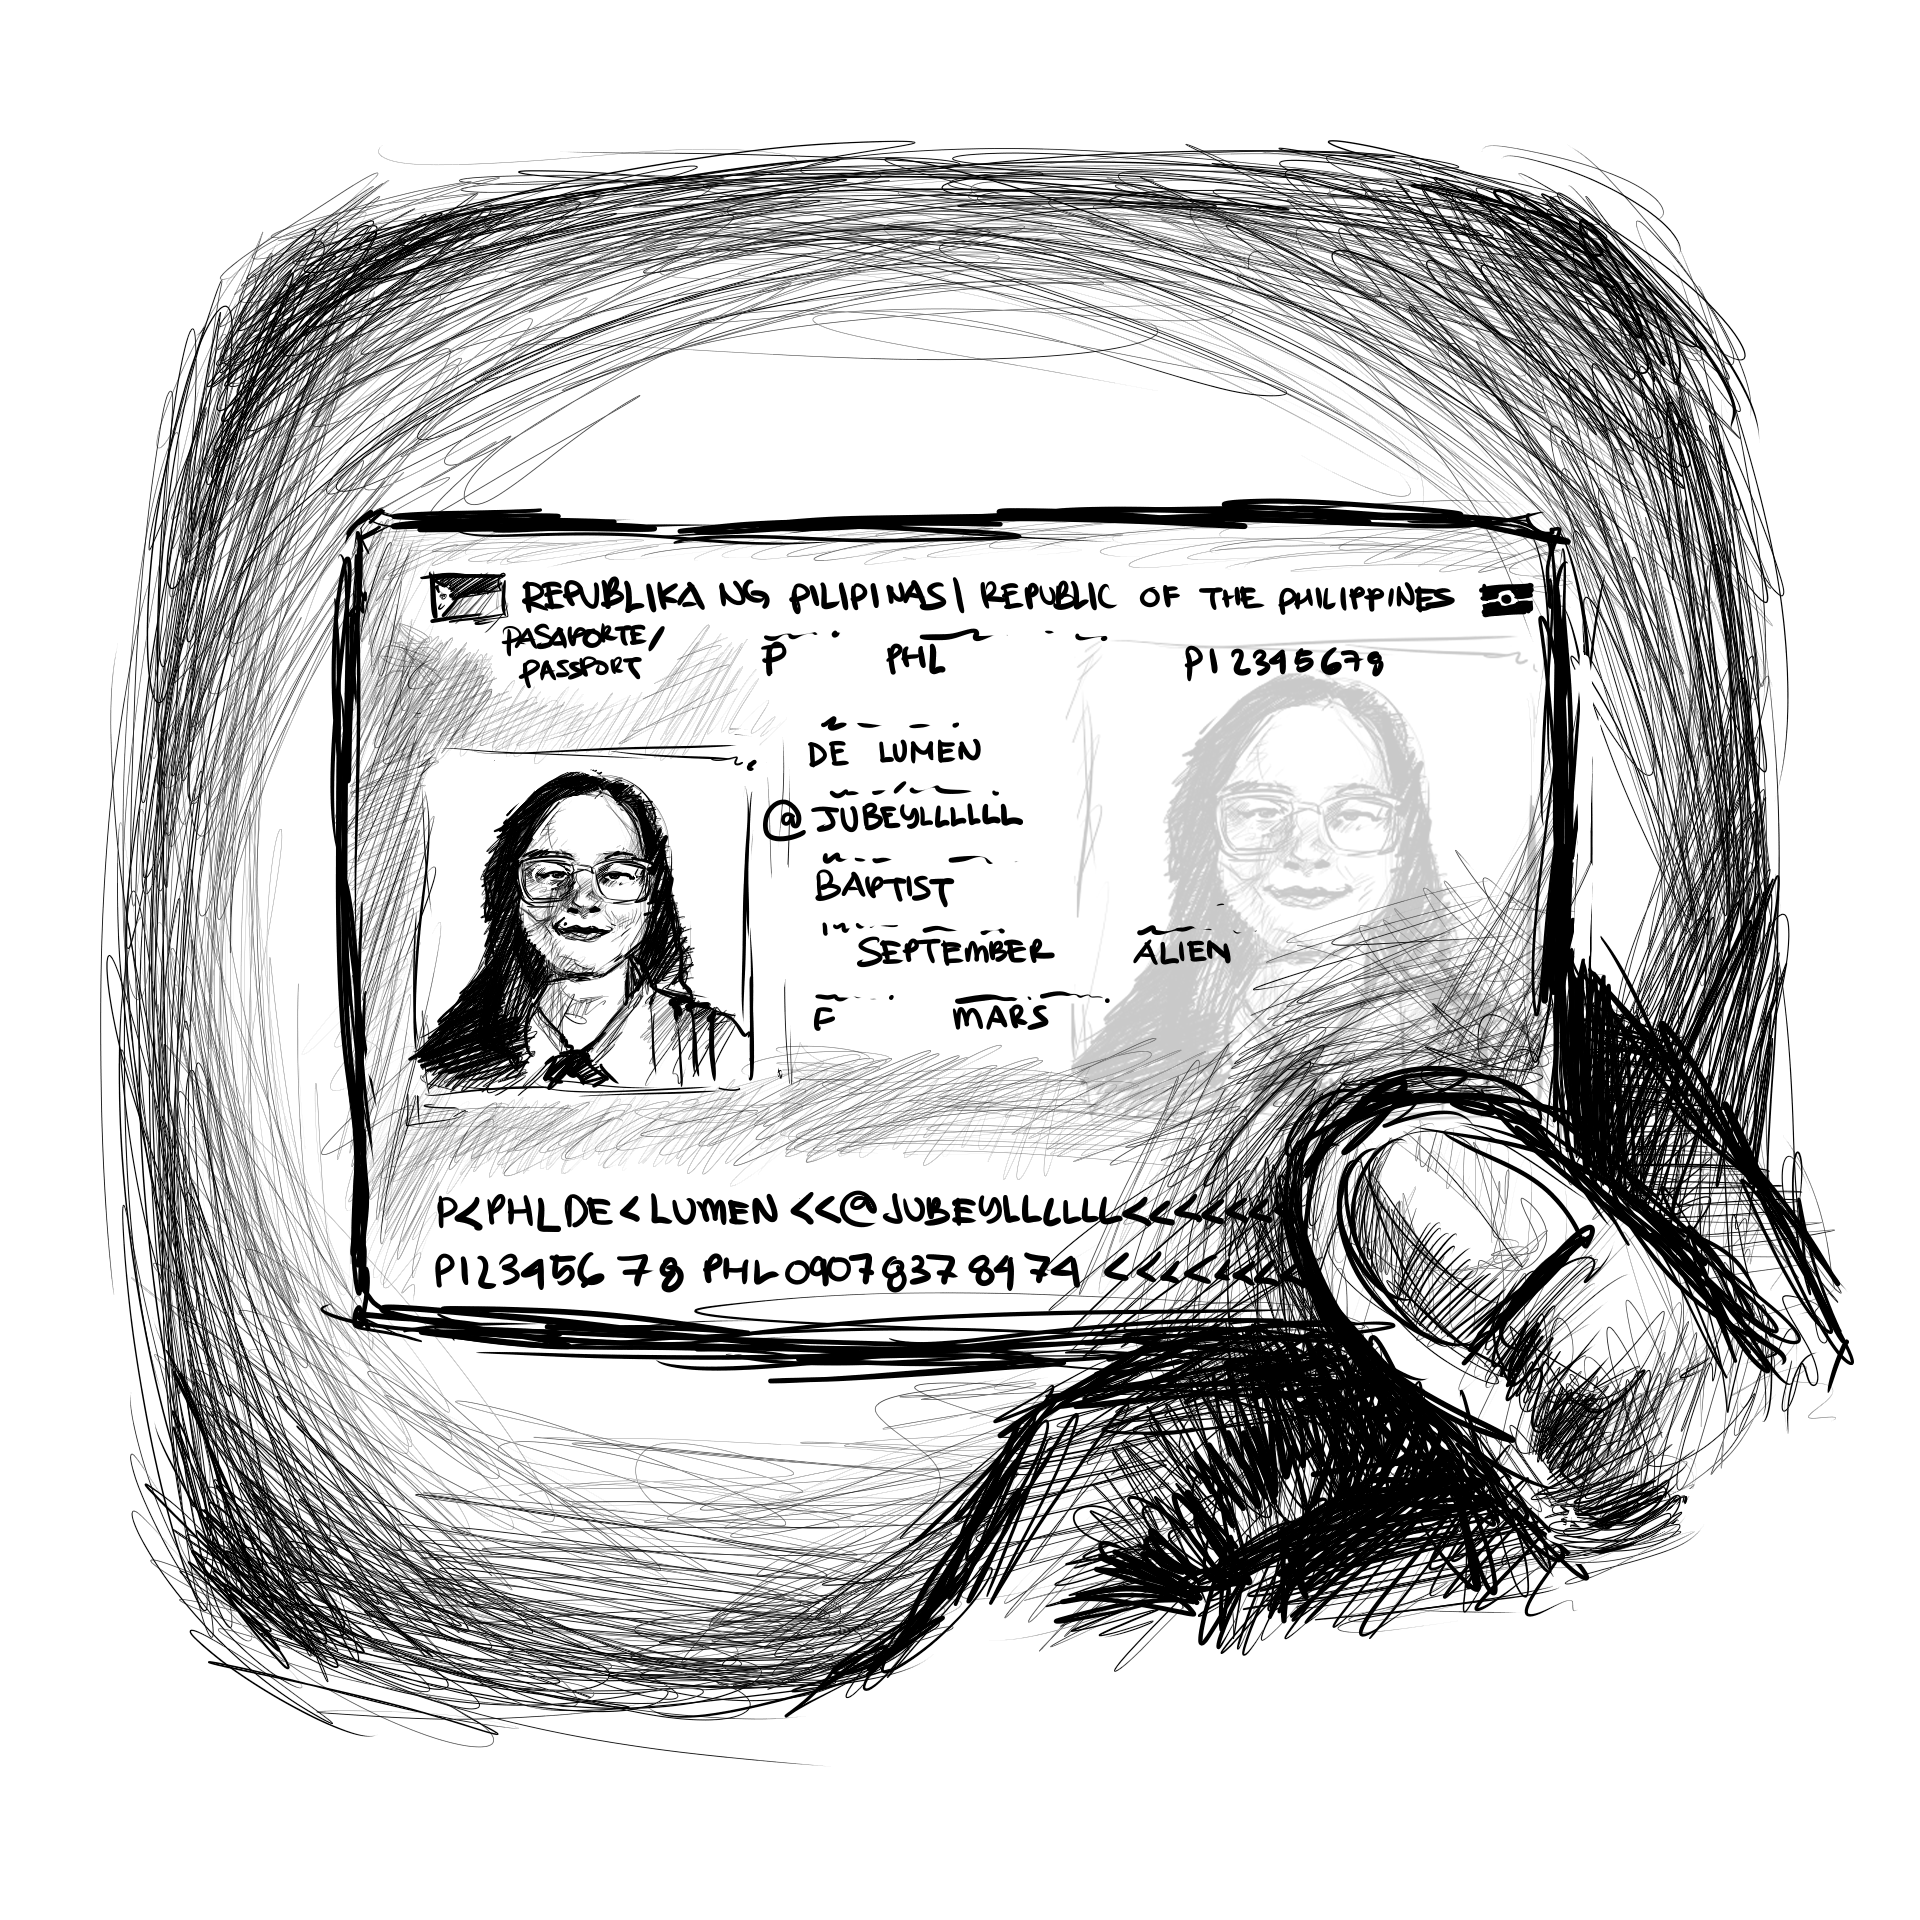 REPUBLIKA NG PILIPINAS| REPUBLIC OF THE PHILIPPINES
PASAPORTE/
PASSPORT
P PHL P12345678
DE LUMEN
@JUBEYLLLLLL
BAPTIST
SEPTEMBER ALIEN
F MARS
P<PHLDE<LUMEN<<@JUBEYLLLLLL<<<<<<
P12345678PHL0907837 8474 <<<<<<<